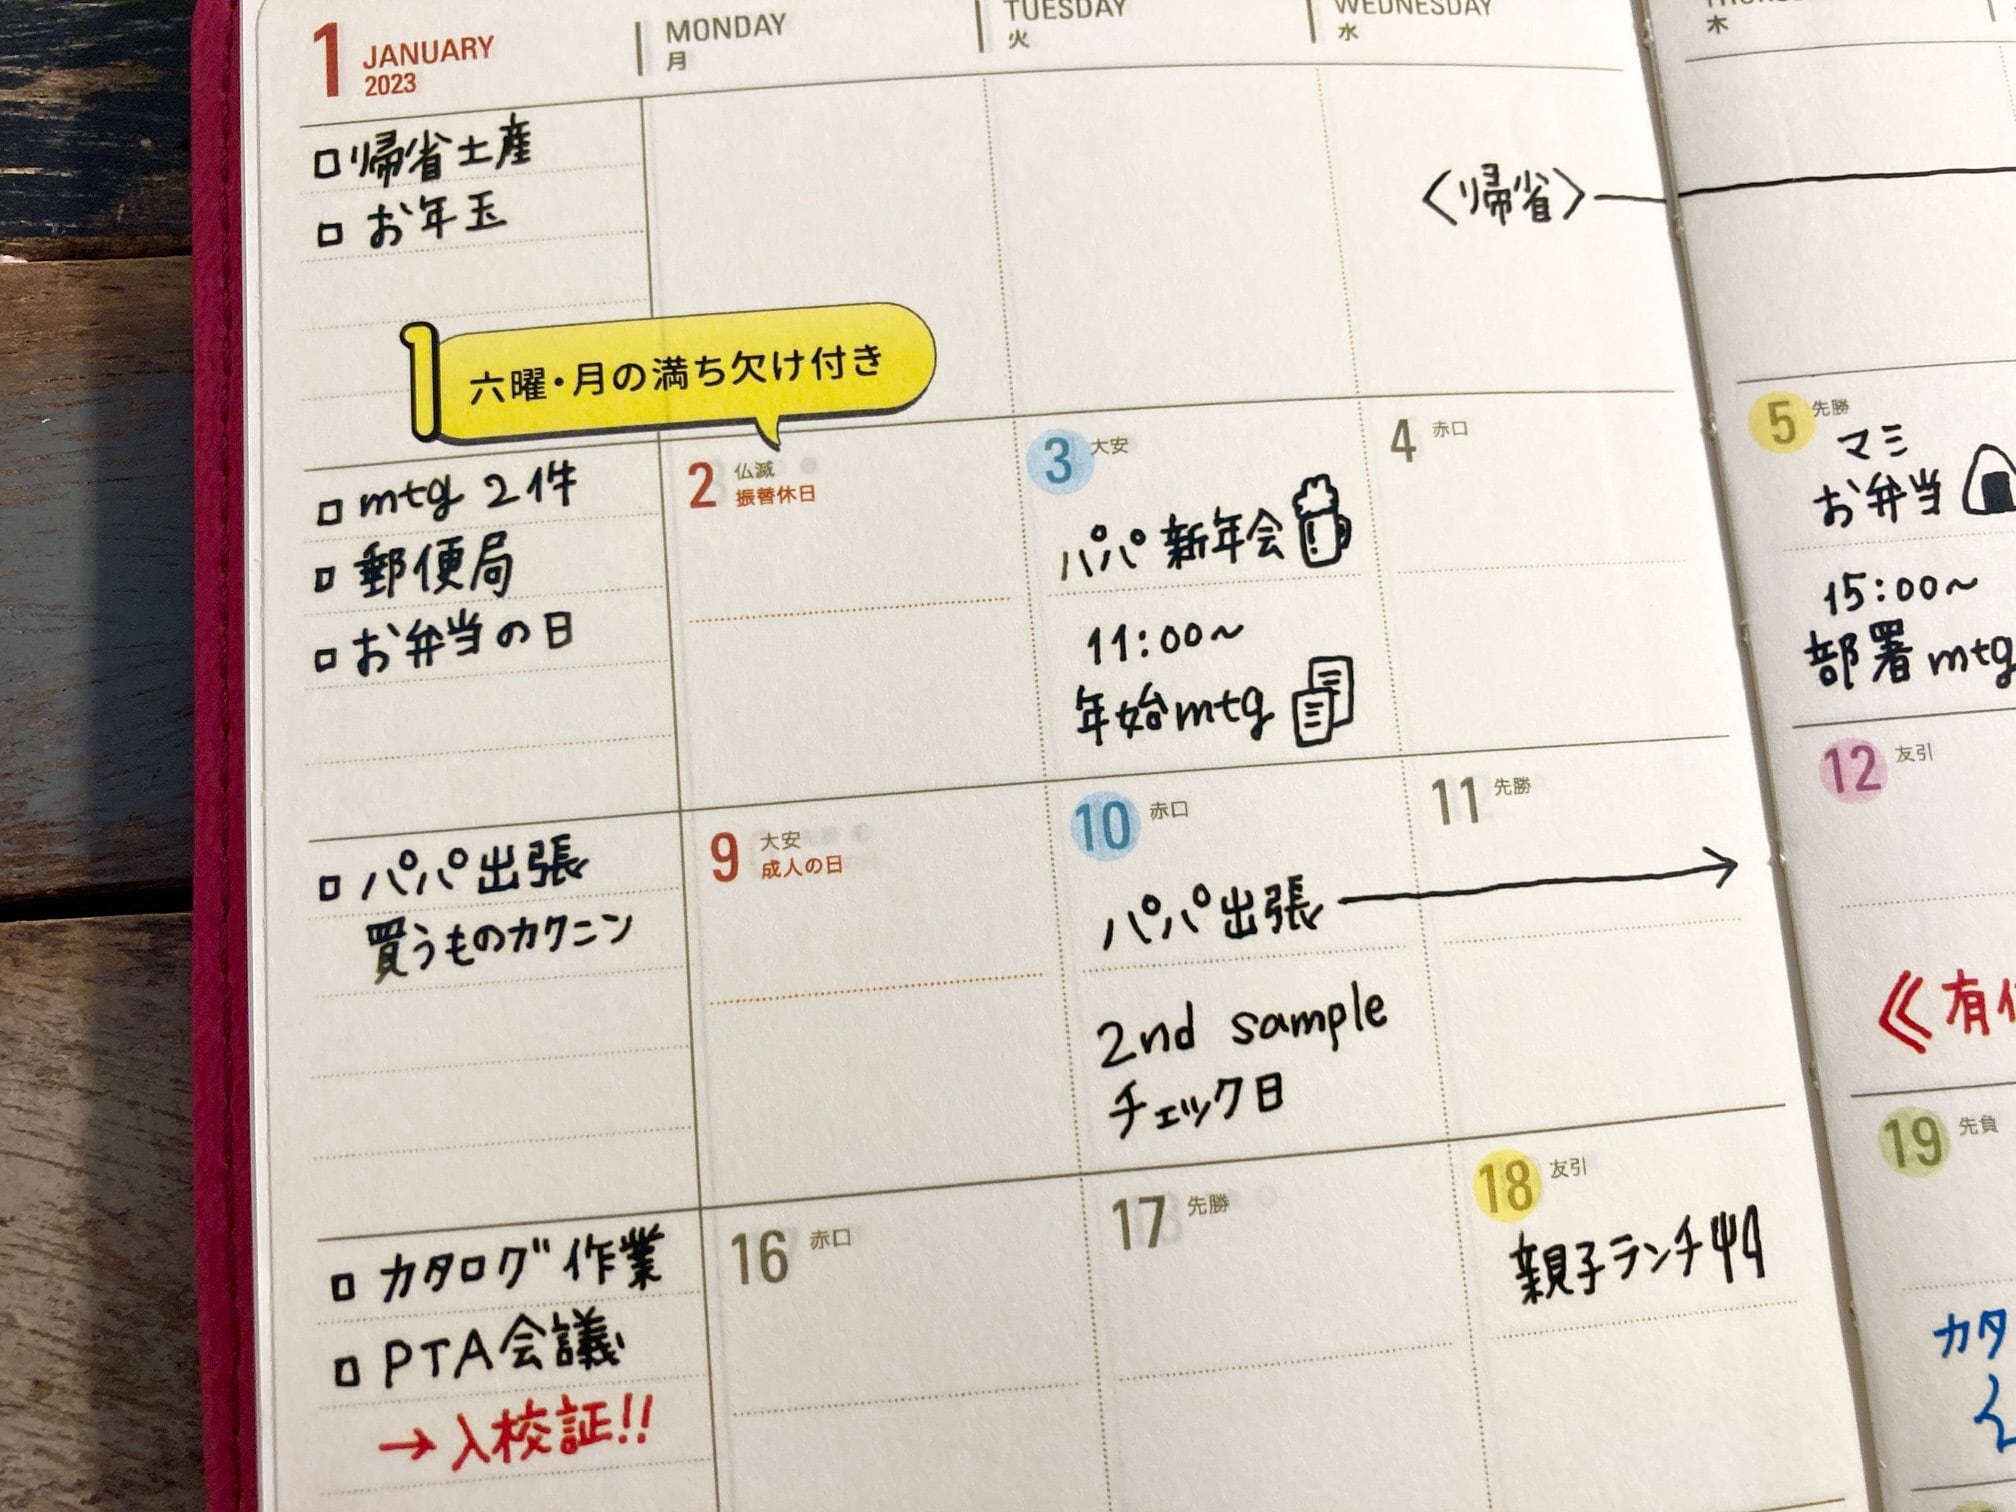 1 JANUARY
2023
MONDAY
月
TUESDAY
火
WEDNESDAY
水
木
□帰省土産
□お年玉
〈帰省〉
六曜・月の満ち欠け付き
□mtg 2件
□郵便局
□お弁当の日
2 仏滅
振替休日
3 大安
パパ新年会
11:00~
年始mtg
4 赤口
5 先勝
マミ
お弁当
15:00~
部署mtg
□パパ出張
買うものカクニン
9 大安
成人の日
10 赤口
パパ出張→
2nd sample
チェック日
11 先勝
12 友引
《有
□カタログ作業
□PTA会議
→入校証!!
16 赤口
17 先勝
18 友引
親子ランチ
19 先負
カタ